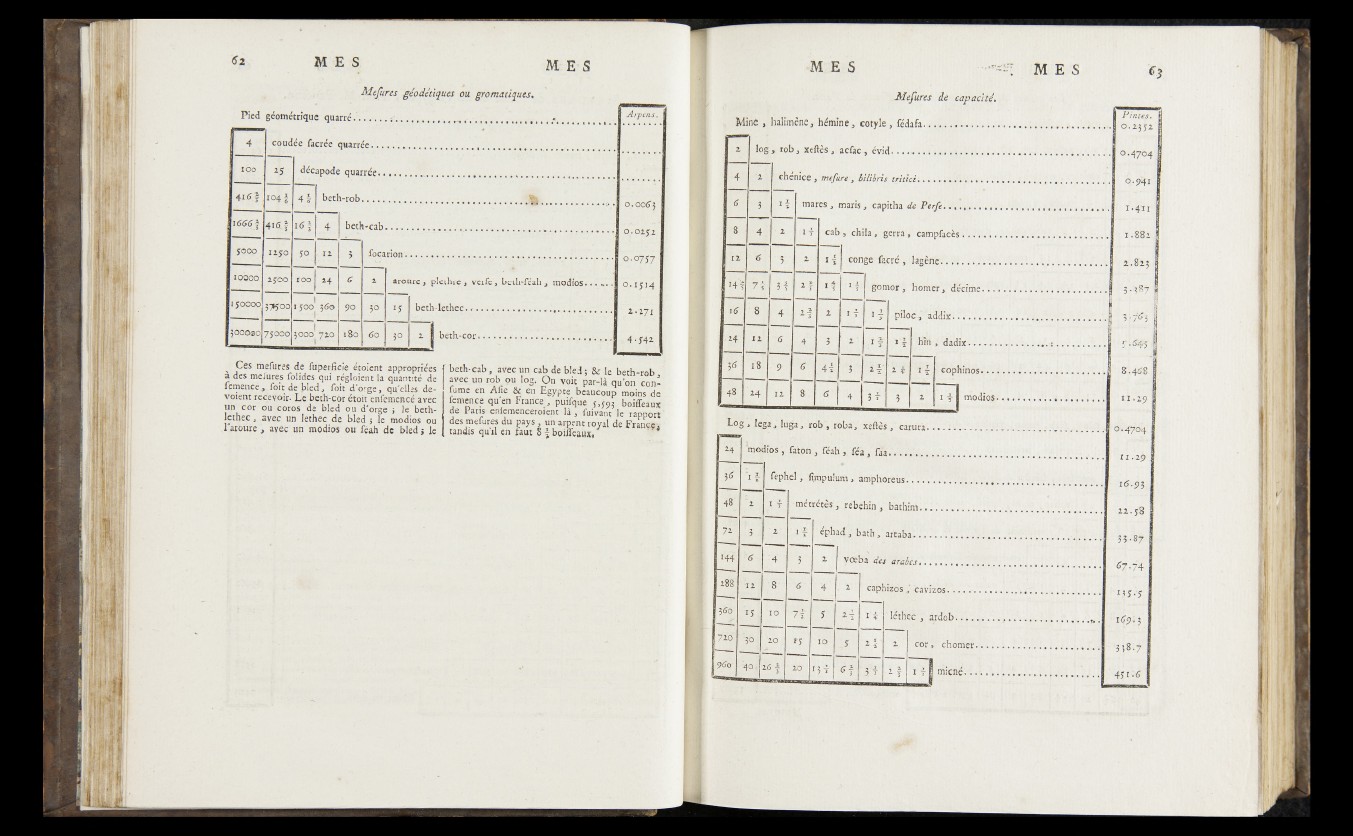 62 MES MES
Mesures géodétiques ou gromatiques.
Arpens.
Pied géométrique quarré
4 coudée sacrée quarrée
100 25 décapode quarrée
416 2/3 104 1/6 4 1/6 beth-rob 0.0063
1666 2/3 416 2/3 16 2/3 4 beth-cab 0.0252
5000 1250 50 12 3 socarion 0.0757
10000 2500 100 24 6 2 aroure, plethre, verse, beth-féah, modios 0.1514
150000 37500 1500 360 90 30 15 beth-lethec 2.271
300000 75000 3000 720 180 60 30 2 beth-cor 4.542
Ces mesures de superficie étoient appropriées
à des mesures solides qui régloient la quantité de
semence, soit de bled, soit d'orge, qu'elles de-
voient recevoir. Le beth-cor étoit ensemencé avec
un cor ou coros de bled ou d'orge ; le beth-
lethec, avec un lethec de bled ; le modios ou
l'aroure, avec un modios ou féah de bled ; le
beth-cab, avec un cab de bled ; & le beth-rob,
avec un rob ou log. On voit par-là qu'on con-
sume en Asie & en Egypte beaucoup moins de
semence qu'en France, puisque 5,593 boisseaux
de Paris ensemenceroient là, suivant le rapport
des mesures du pays, un arpent royal de France,
tandis qu'il en faut 8 boisseaux,
MES MES 63
Mesures de capacité.
Pintes.
Mine, halimène, hémine, cotyle, fédafa 0.2352
2 log, rob, xestès, acfac, évid 0.4704
4 2 chénice, mesure, bilibris tritici 0.941
6 3 1 1/2 mares, maris, capitha de Perse 1.411
8 4 2 1 1/3 cab, chila, gerra, campsacès 1.882
12 6 3 2 1 1/2 conge sacré, lagène 2.823
14 2/5 7 1/5 3 3/5 2 2/5 1 4/5 1 1/5 gomor, homer, décime 3.387
16 8 4 2 2/3 2 1 1/3 1 1/9 piloc, addix 3.763
24 12 6 4 3 2 1 2/3 1 1/2 hin, dadix 5.645
36 18 9 6 4 1/2 3 2 1/2 2 1/4 1 1/2 cophinos 8.468
48 24 12 8 6 4 3 1/3 3 2 1 1/3 modios 11.29
Log, lega, luga, rob, roba, xestès, carura 0.4704
24 modios, saton, féah, féa, saa 11.29
36 1 1/2 sephel, simpulum, amphoreus 16.93
48 2 1 1/3 métrétès, rebehin, bathim 22.58
72 3 2 1 1/2 éphad, bath, artaba 33.87
144 6 4 3 2 vœba des arabes 67.74
288 12 8 6 4 2 caphizos, cavizos 135.5
360 15 10 7 1/2 5 2 1/2 1 1/4 léthec, ardob 169.3
720 30 20 15 10 5 2 1/2 2 cor, chomer 338.7
960 40 26 2/3 20 13 1/3 6 2/3 3 1/3 2 2/3 1 1/3 micné 451.6